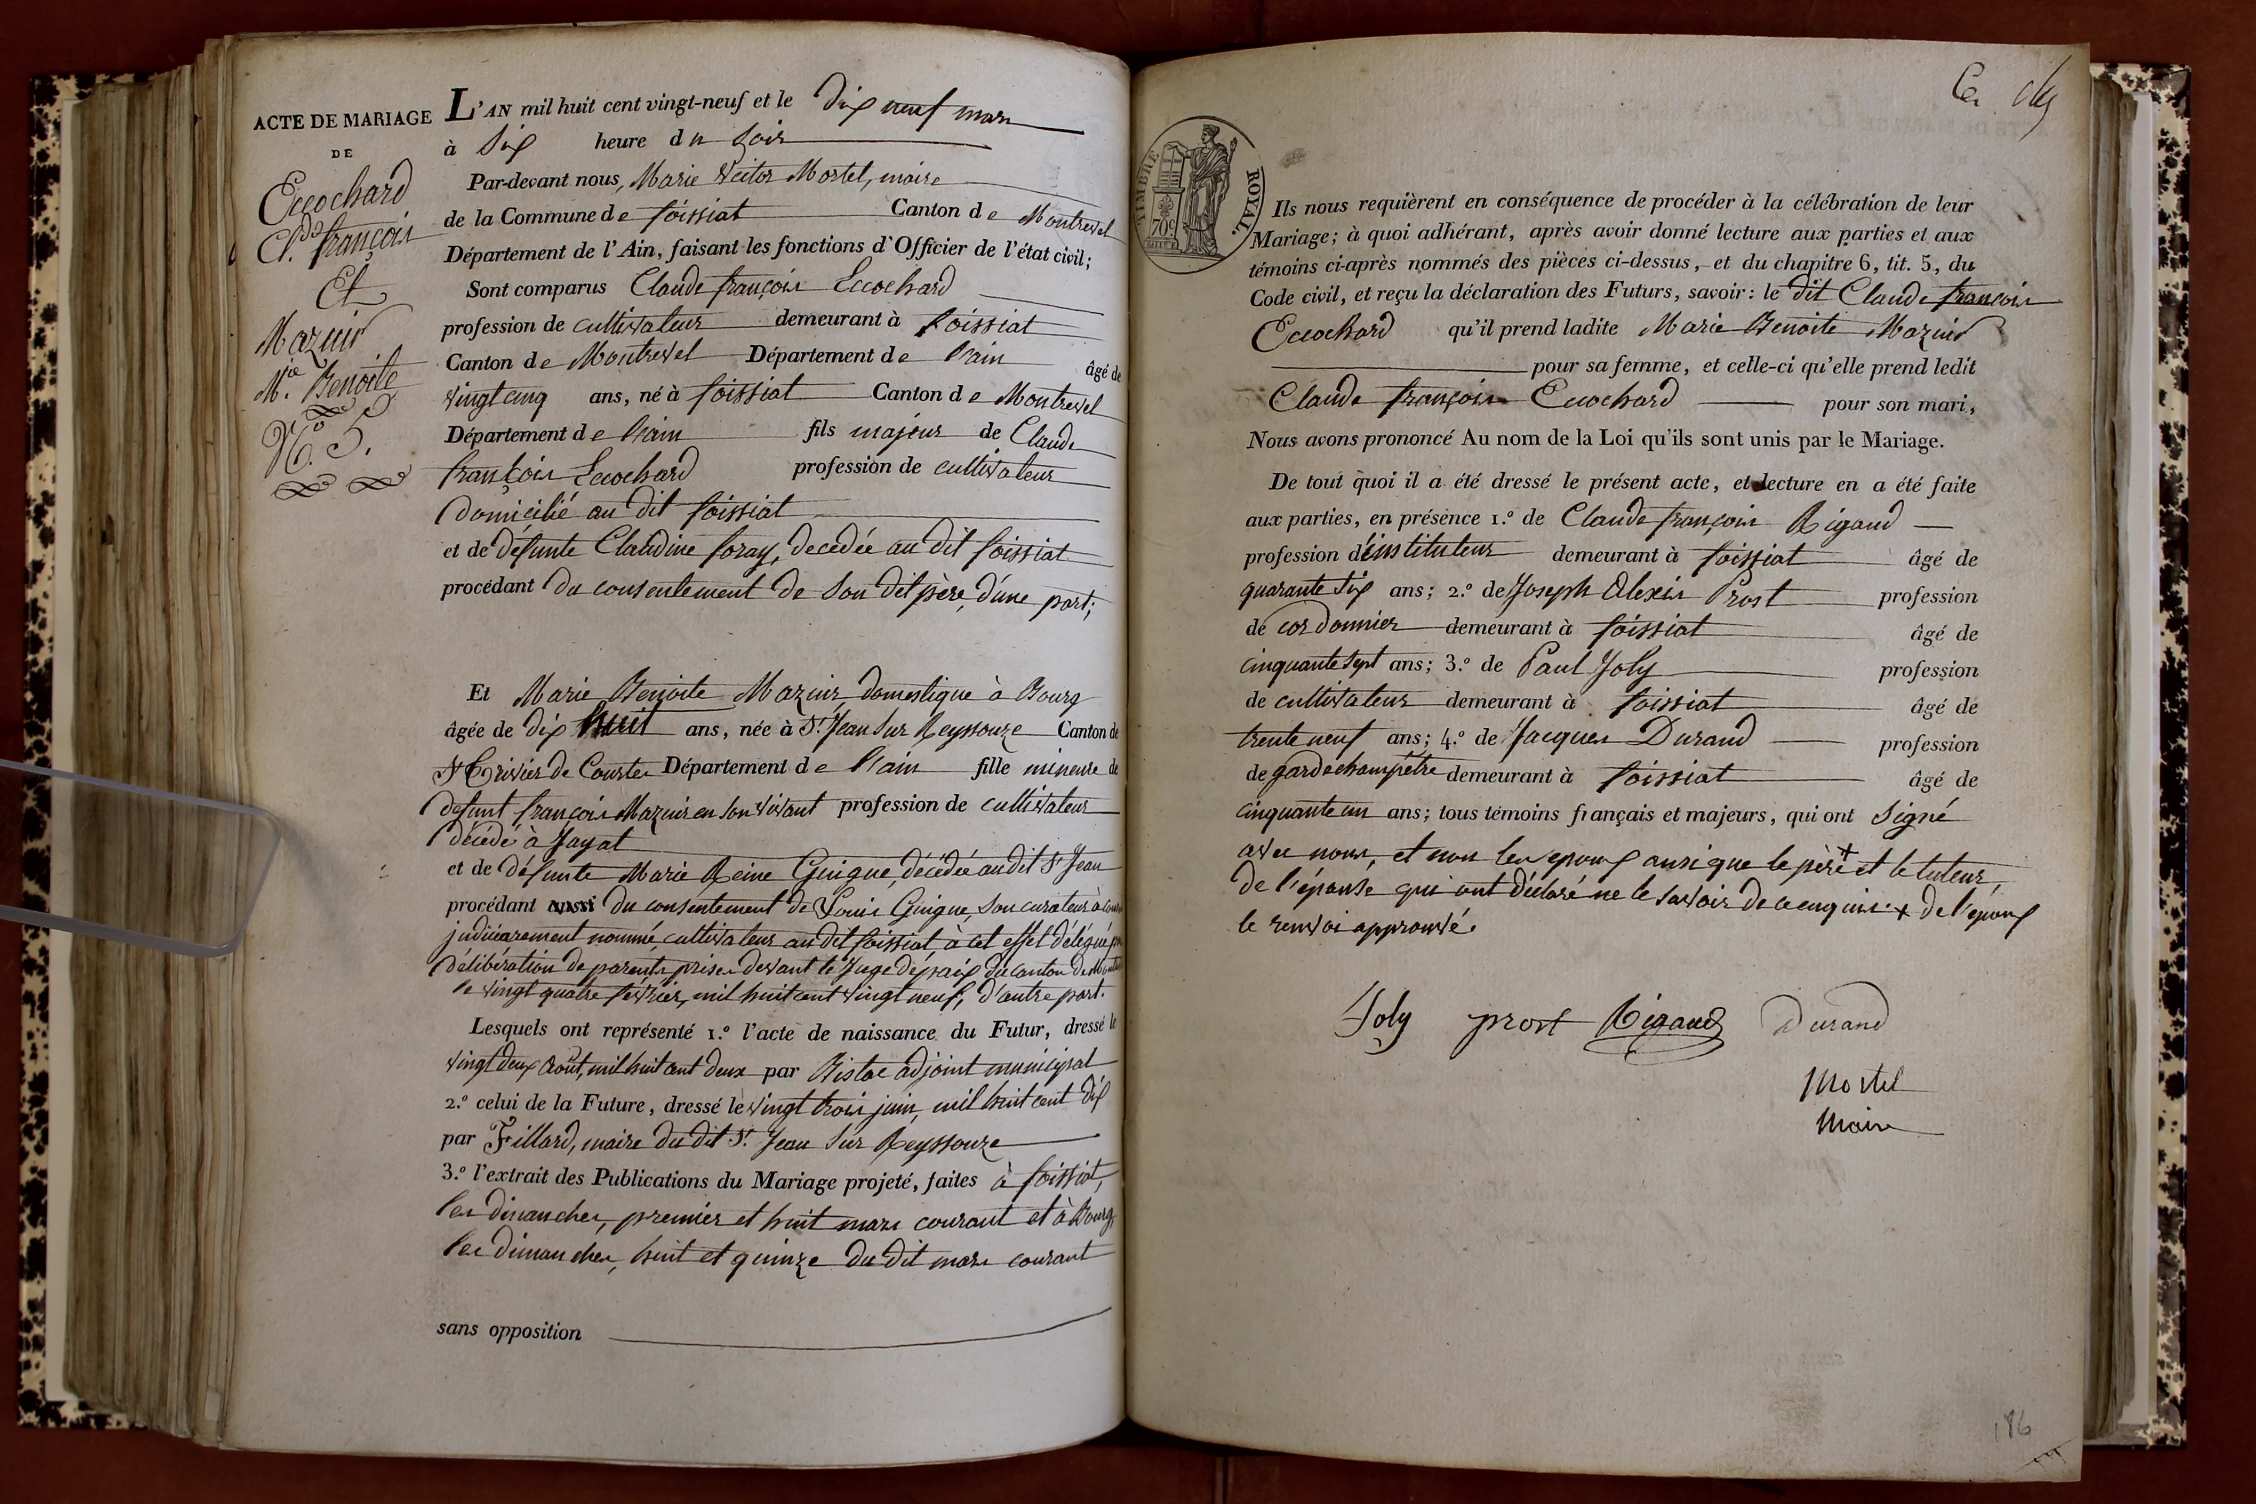 ACTE DE MARIAGE
DE
Eccochard
Cl.de françois
Et
Mazuir
M.ie Benoite
N.o 5.
L'AN mil huit cent vingt-neuf et le dix neuf mars
à six heure du soir
Par-devant nous, Marie Victor Mortel, maire
de la Commune de foissiat Canton de Montrevel
Département de l'Ain, faisant les fonctions d'Officier de l'état civil;
Sont comparus Claude françois Eccochard
profession de cultivateur demeurant à foissiat
Canton de Montrevel Département de l'ain âgé de
vingt cinq ans, né à foissiat Canton de Montrevel
Département de l'ain fils majeur de Claude
françois Eccochard profession de cultivateur
domicilié au dit foissiat
et de défunte Claudine foray, decedée au dit foissiat
procédant du consentement de son dit père, d'une part;
Et Marie Benoite Mazuir, domestique à Bourg
âgée de dix huit ans, née à St Jean sur Reyssouze Canton de
St Trivier de Courtes Département de l'ain fille mineure de
defunt françois Mazuir en son vivant profession de cultivateur
décédé à Jayat
et de défunte Marie Reine Guigue, décédée au dit St Jean
procédant aussi du consentement de Louis Guigue, son curateur à
judiciairement nommé, cultivateur au dit foissiat, à cet effet délégué
délibération de parents prise devant le Juge de paix du canton de
le vingt quatre février, mil huit cent vingt neuf, d'autre part.
Lesquels ont représenté 1.o l'acte de naissance du Futur, dressé le
vingt deux Août, mil huit cent deux par Bistac adjoint municipal
2.o celui de la Future, dressé le vingt trois juin, mil huit cent dix
par Fillard, maire du dit St. Jean sur Reyssouze
3.o l'extrait des Publications du Mariage projeté, faites à foissiat,
les dimanches, premier et huit mars courant et à Bourg,
les dimanches, huit et quinze du dit mars courant
sans opposition
TIMBRE ROYAL
70c
Ils nous requièrent en conséquence de procéder à la célébration de leur
Mariage; à quoi adhérant, après avoir donné lecture aux parties et aux
témoins ci-après nommés des pièces ci-dessus, et du chapitre 6, tit. 5, du
Code civil, et reçu la déclaration des Futurs, savoir: le dit Claude françois
Eccochard qu'il prend ladite Marie Benoite Mazuir
pour sa femme, et celle-ci qu'elle prend ledit
Claude françois Eccochard pour son mari,
Nous avons prononcé Au nom de la Loi qu'ils sont unis par le Mariage.
De tout quoi il a été dressé le présent acte, et lecture en a été faite
aux parties, en présence 1.o de Claude françois Rigaud
profession d'instituteur demeurant à foissiat âgé de
quarante six ans; 2.o de Joseph Alexis Prost profession
de cordonnier demeurant à foissiat âgé de
cinquante sept ans; 3.o de Paul Joly profession
de cultivateur demeurant à foissiat âgé de
trente neuf ans; 4.o de Jacques Durand profession
de garde champêtre demeurant à foissiat âgé de
cinquante un ans; tous témoins français et majeurs, qui ont signé
avec nous, et non les epoux ansi que le père + et le tuteur
de l'épouse qui ont déclaré ne le savoir de ce enquis. + de l'epoux
le renvoi approuvé.
Joly prost Rigaud Durand
Mortel
Maire
186